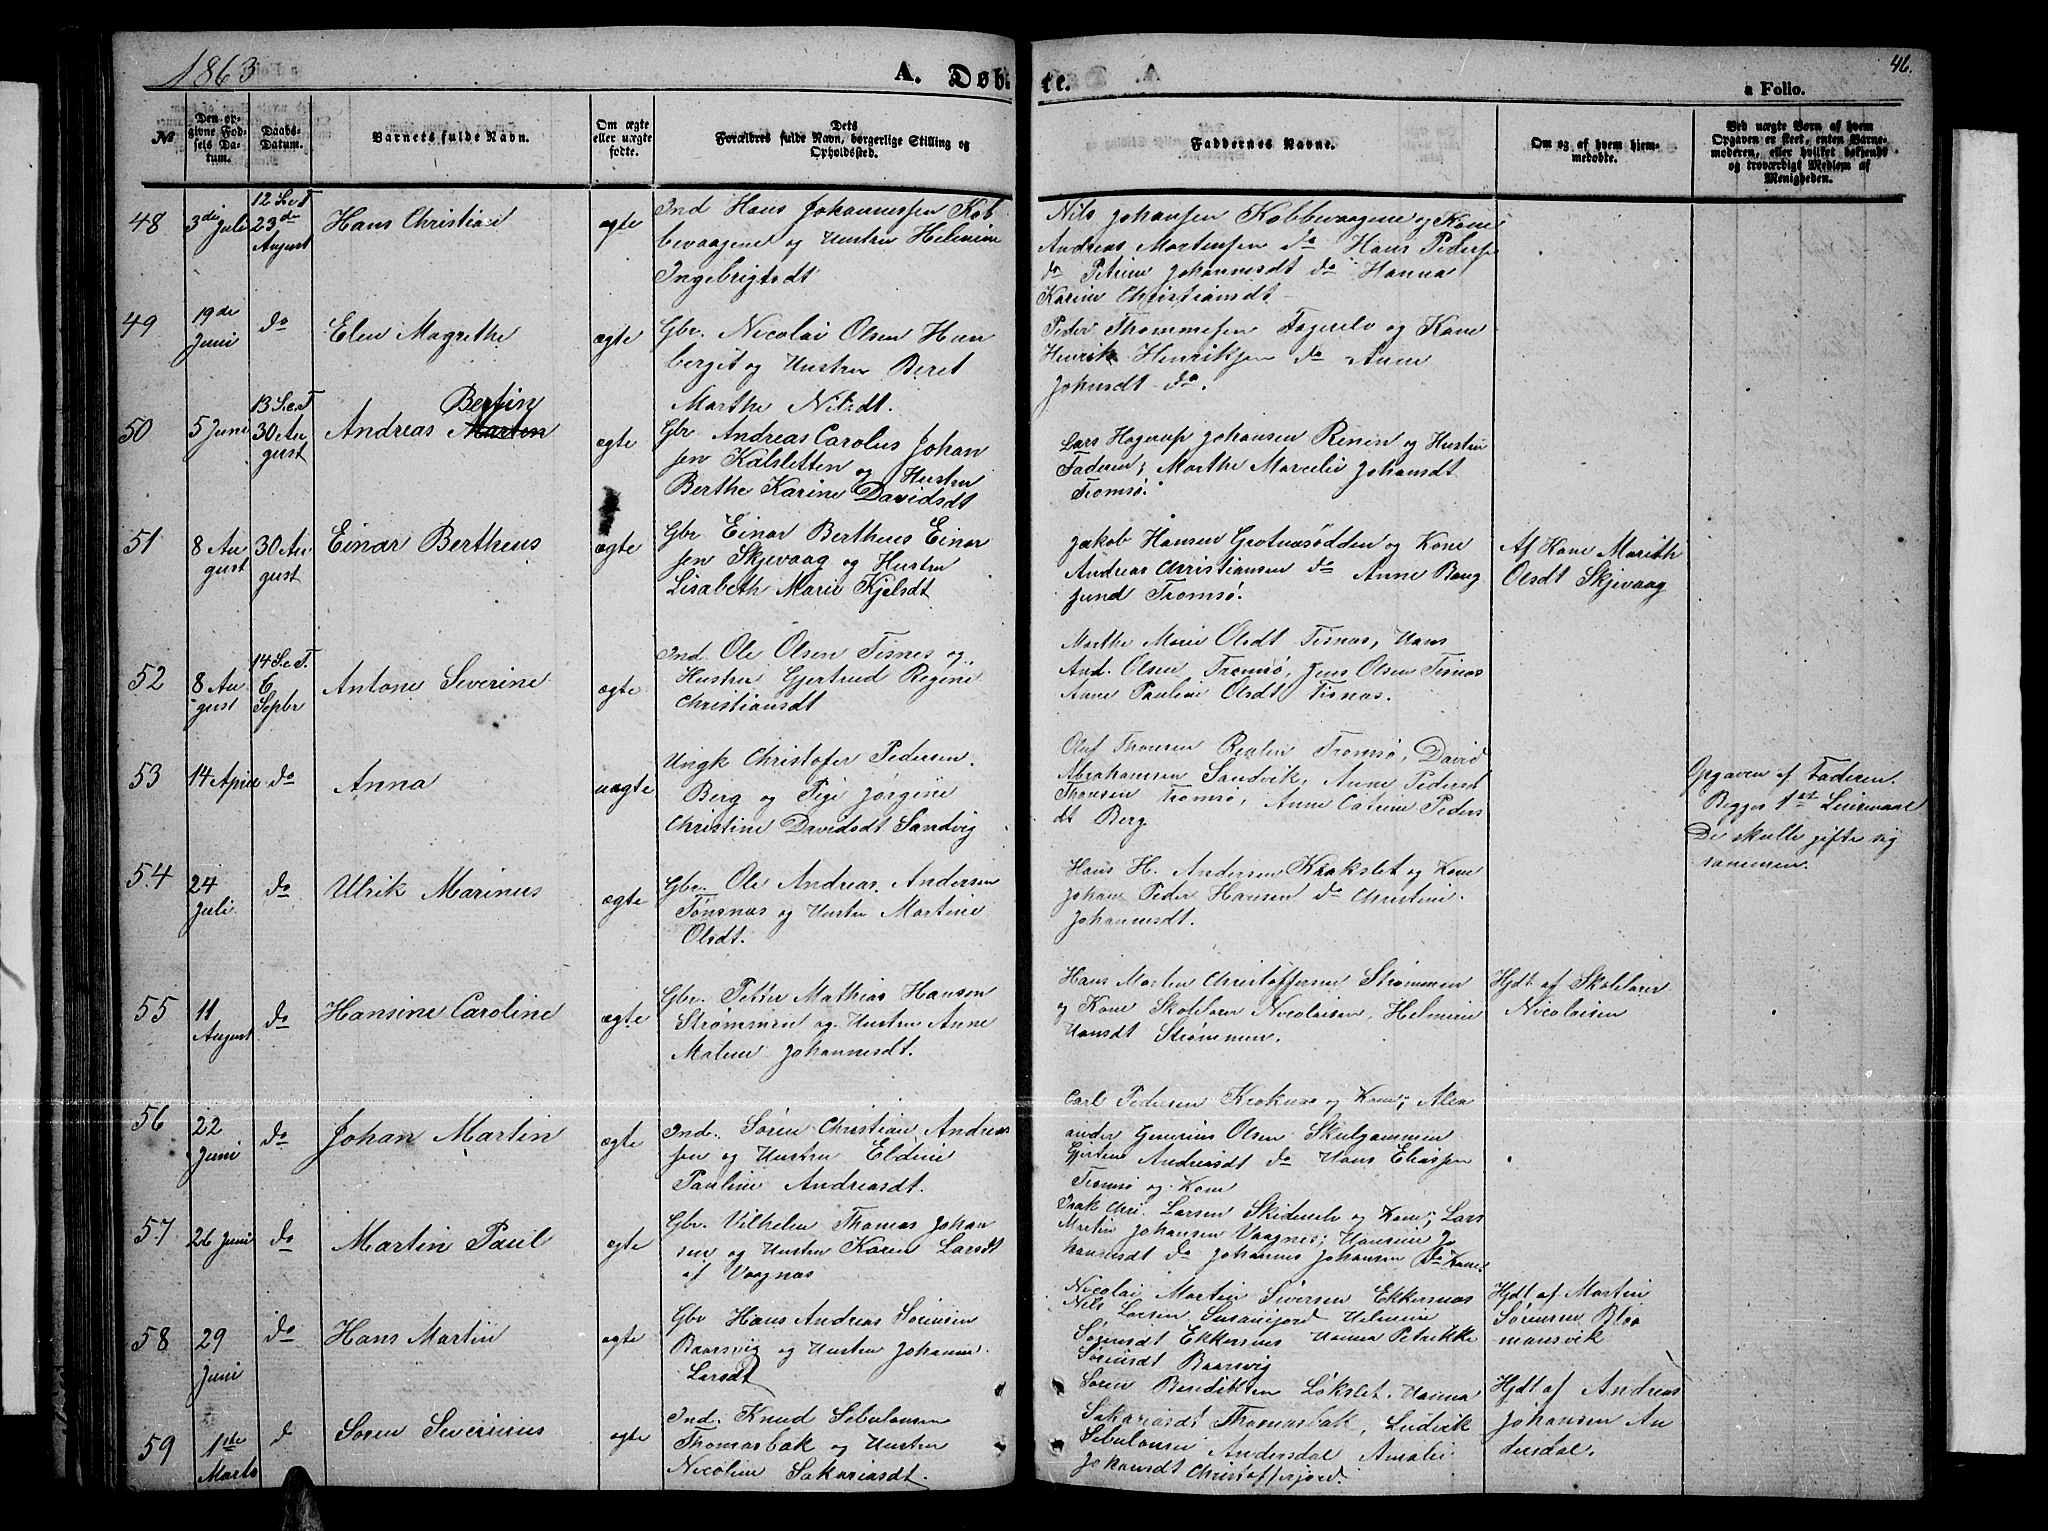 1863
A. Døb-
te.
46.
a Folio.
№
Den op-
givne Fød-
sels Da-
tum.
Daabs-
Datum.
Barnets fulde Navn.
Om ægte
eller uægte
fødte.
Dets
Forældres fulde Navn, borgerlige Stilling og
Opholdssted.
Faddernes Navne.
Om og af hvem hjem-
medøbte.
Ved uægte Børn af hvem
Opgaven er skeet, enten Barne-
moderen, eller hvilket bekjendt
og troværdigt Medlem af
Menigheden.
48
3die Juli
12 S.e.T
23de
August
Hans Christian
ægte
Ind Hans Johannessen Kob
bevaagene og Hustru Helmine
Ingebrigtsdt
Nils Johansen Kobbevaagene og Kone
Andreas Mortensen do Hans Peders
do Petrine Johannesdt do Hanna
Karine Christiansdt
49
19de
Juni
do
Elen Magrethe
ægte
Gbr. Nicolai Olsen Hun
berget og Hustru Beret
Marthe Nilsdt.
Peder Thommesen Fagerelv og Kone
Henrik Henriksen do Anne
Johnsdt do.
50
5 Juni
13 S.e.T
30 Au
gust
Bertin
Andreas Martin
ægte
Gbr. Andreas Carolus Johan
sen Kalsletten og Hustru
Berthe Karine Davidsdt
Lars Hagerup Johansen Renen og Hustru
Faderen; Marthe Marcelie Johansdt
Tromsø.
51
8 Au
gust
30 Au
gust
Einar Bertheus
ægte
Gbr Einar Bertheus Einar
sen Skjevaag og Hustru
Lisabeth Marie Kjelsdt
Jakob Hansen Grotnæsødden og Kone
Andreas Christiansen do Anne Baug
lund Tromsø.
Af Kone Marith
Olsdt Skjevaag
52
8 Au
gust
14 S.e.T.
6
Septbr
Antone Severine
ægte
Ind. Ole Olsen Tisnes og
Hustru Gjertrud Regine
Christiansdt
Marthe Marie Olsdt Tisnæs, Hans
And. Olsen Tromsø, Jens Olsen Tisnæs
Anne Pauline Olsdt Tisnæs.
53
14 April
do
Anna
uægte
Ungk Christofer Pedersen
Berg og Pige Jørgine
Christine Davidsdt Sandvig
Oluf Thonsen Tromsø, David
Abrahamsen Sandvik, Anne Pedersdt
Thonsen Tromsø, Anne Catrine Peders
dt Berg
Opgaven af Faderen.
Begges 1ste Leiermaal
De skulle gifte sig
sammen.
54
24
Juli
do
Ulrik Marinus
ægte
Gbr. Ole Andreas Andersen
Tønsnæs og Hustru Martine
Olsdt.
Hans H. Andersen Krakslet og Kone
Johan Peder Hansen do Christine
Johannesdt.
55
11
August
do
Hansine Caroline
ægte
Gbr. Petter Mathias Hansen
Strømmen og Hustru Anne
Malene Johannesdt.
Hans Morten Christoffersen Strømmen
og Kone Skolelærer Nicolaisen, Helmine
Hansdt Strømmen.
Hjdt af Skolelærer
Nicolaisen
56
22
Juni
do
Johan Martin
ægte
Ind. Søren Christian Andreas
sen og Hustru Eldine
Pauline Andreasdt.
Carl Pedersen Kroknæs og Kone; Alex
ander Olsen Skulgammen
Andreasdt do Hans Eliassen
Tromsø og Kone
57
26 Juni
do
Martin Paul
ægte
Gbr. Vilhelm Thomas Johan
sen og Hustru Karen Larsdt
af Vaagnæs
Isak Chri. Larsen Skidenelv og Kone; Lars
Martin Johansen Vaagnes; Hansine Jo
hannesdt do Johannes Johansen do Kone
58
29
Juni
do
Hans Martin
ægte
Gbr Hans Andreas Sørensen
Baarsvig og Hustru Johanne
Larsdt
Nicolai Martin Siversen Ekkernæs
Nils Larsen Helmine
Sørensdt Ekkernæs Hanna Petrikke
Sørensdt Baarsvig
Hjdt af Martin
Sørensen Blaa
mansvik
59
1ste
Marts
do
Søren Severinus
ægte
Ind. Knud Sebulonsen
Thomasbak og Hustru
Nicoline Sakariasdt.
Søren Bendiktsen Løkslet. Hanna
Sakariasdt Thomasbak, Ludvik
Sebulonsen Andersdal Amalie
Johansdt Christofferjord.
Hjdt af Andreas
Johansen An
dersdal.